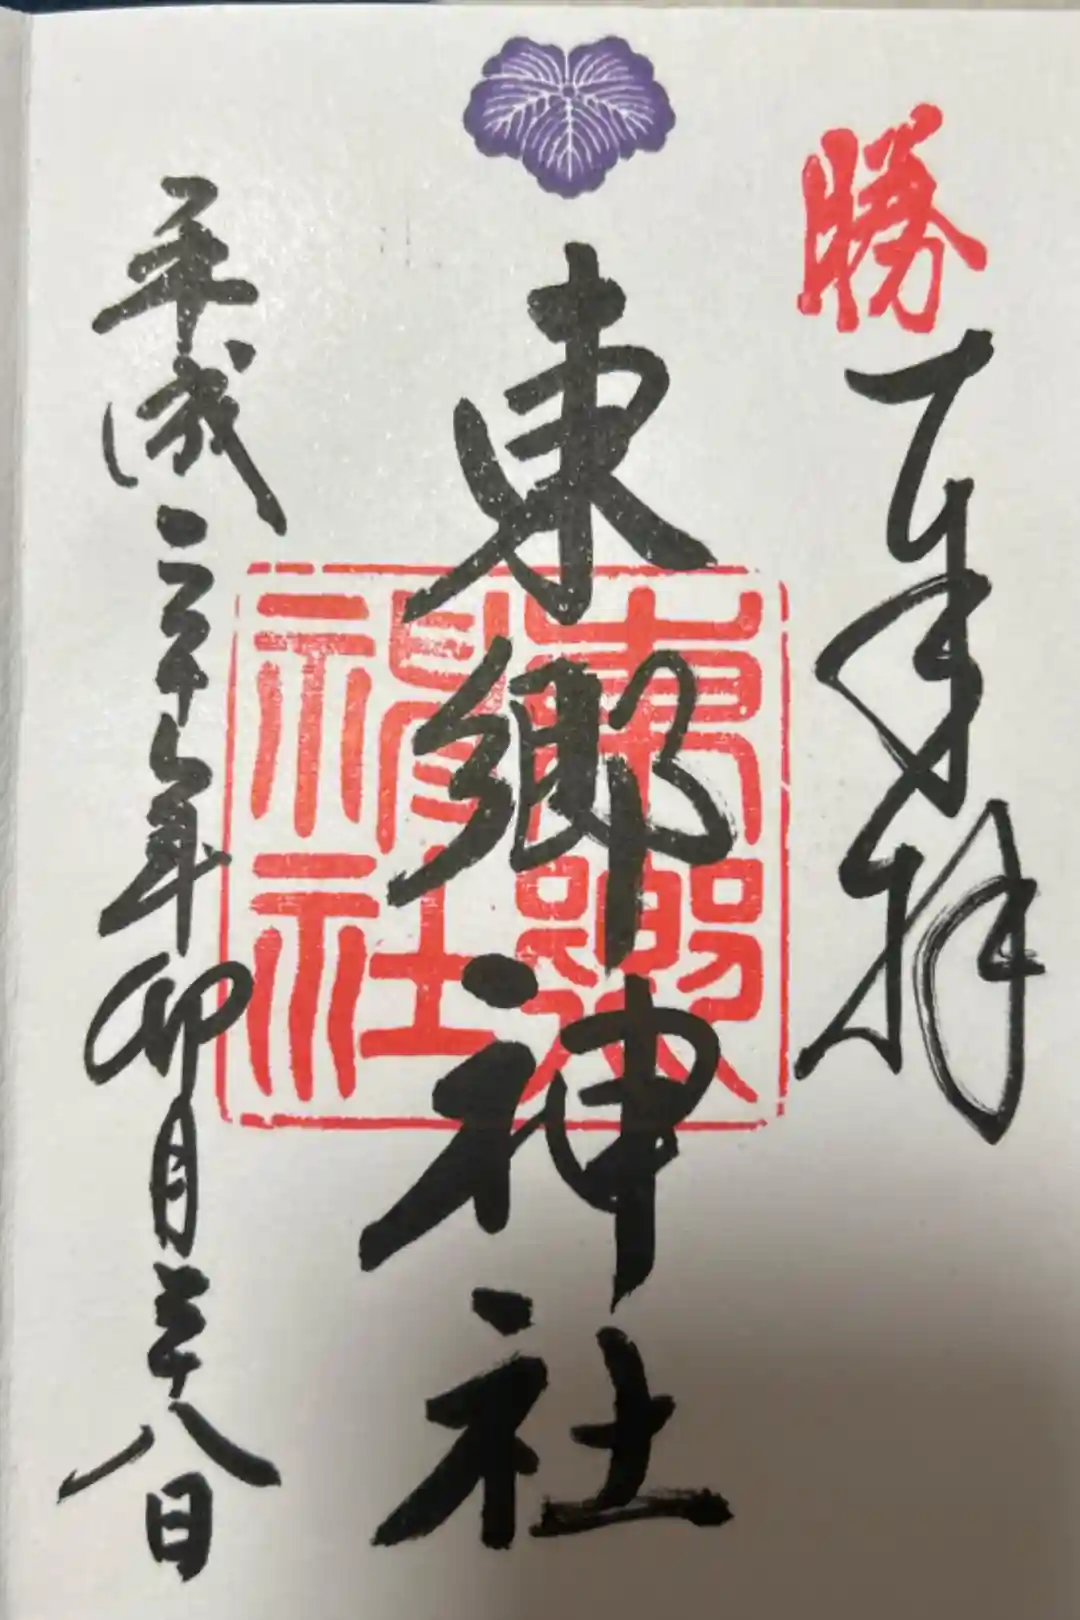 勝
奉拝
東郷神社
東郷神社
平成二十七年卯月二十八日